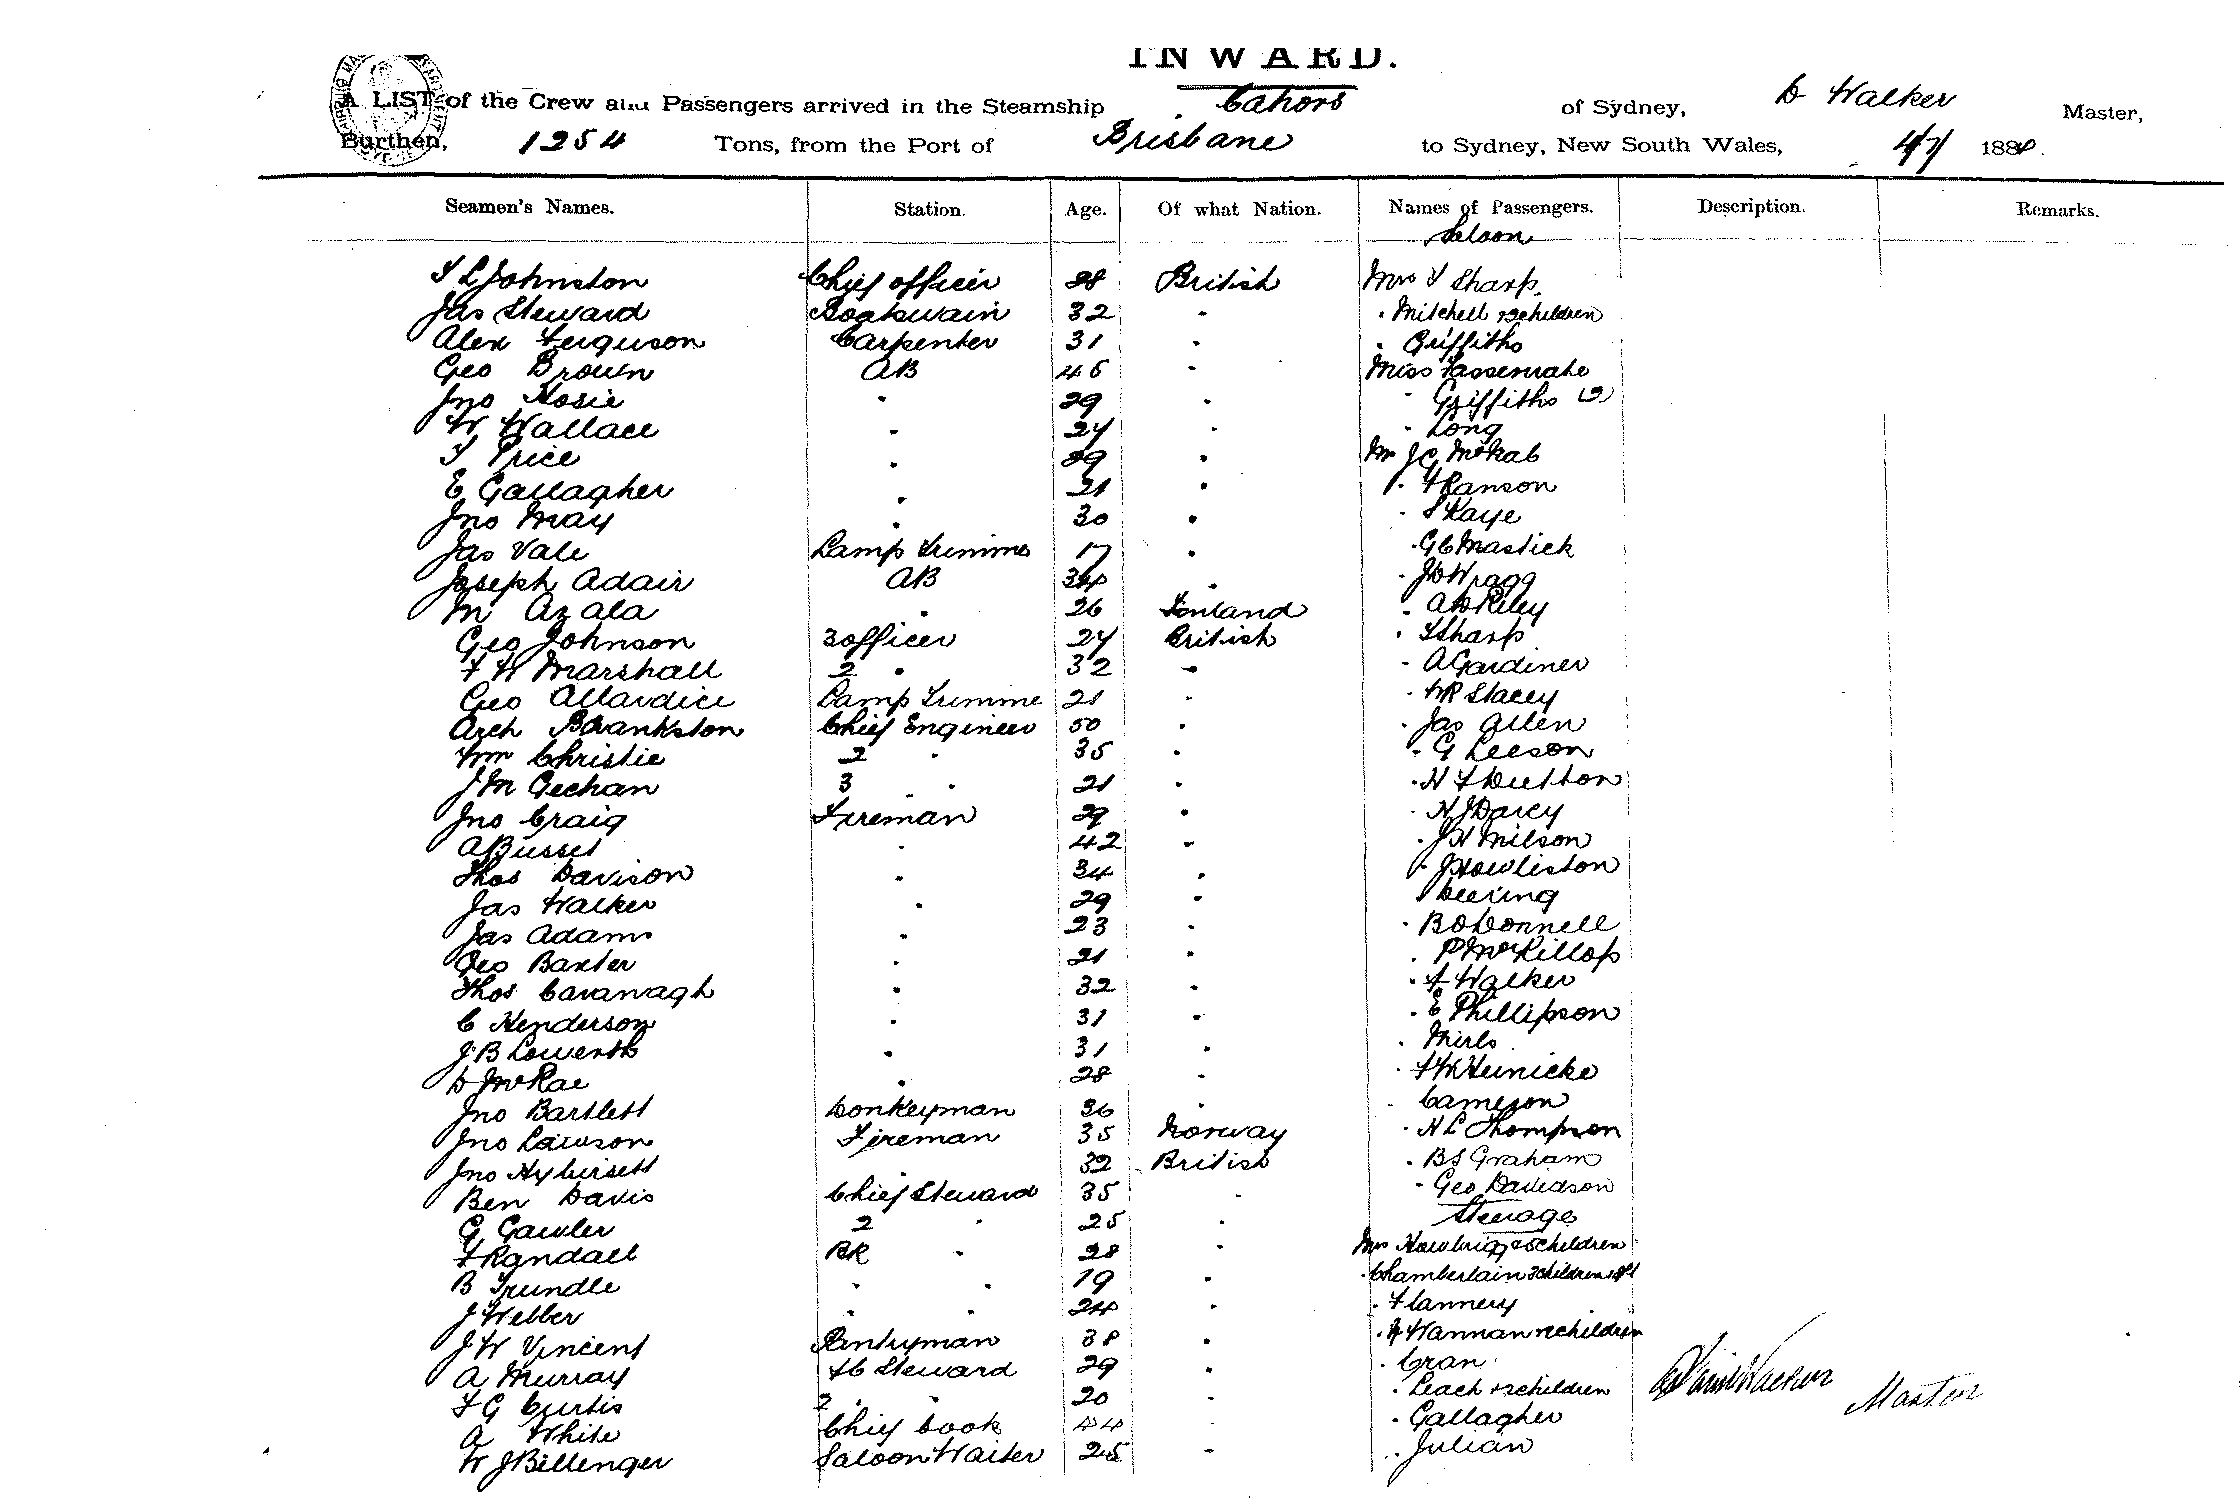 INWARD.
A LIST of the Crew and Passengers arrived in the Steamship Cahors of Sydney, D Walker Master,
Burthen, 1254 Tons, from the Port of Brisbane to Sydney, New South Wales, 4/7 188
Seamen's Names. Station. Age. Of what Nation. Names of Passengers. Description. Remarks.
Saloon
Johnston Chief officer 28 British Mrs Sharp
Jas Steward Boatswain 32 " " Mitchell & 2 children
Alex Ferguson Carpenter 31 " " Griffiths
Geo Brown AB 45 " Miss
Jno Hosie " 29 " " Griffiths (2)
W Wallace " 24 " " Long
Price " 29 " Mr J C McNab
E Gallagher " 21 " " Ranson
Jno May " 30 " " Kaye
Jas Vale Lamp Trimme 17 " " G C Mastick
Joseph Adair AB 34 " " Wragg
M Azala " 26 Finland " Riley
Geo Johnson 3 officer 24 British " Sharp
F W Marshall 2 " 32 " " A Gardiner
Geo Allardice Lamp Trimme 21 " " W R Stacey
Arch Brankston Chief Engineer 50 " " Jas Allen
Wm Christie 2 " 35 " " G Leeson
J M Geehan 3 " " 21 " " H F Dutton
Jno Craig Fireman 29 " " H J Darcy
A Bussel " 42 " " J H Milson
Thos Davison " 34 " " J Howliston
Jas Walker " 29 " Deering
Jas Adams " 23 " " B O Donnell
Geo Baxter " 21 " " P McKillop
Thos Cavanagh " 32 " " F Walker
C Henderson " 31 " " E Phillipson
J B Lowerth " 31 " "
D McRae " 28 " " Heinicke
Jno Bartlett Donkeyman 36 " " Cameron
Jno Lawson Fireman 35 Norway " H L Thompson
Jno " 32 British " B S Graham
Ben Davis Chief Steward 35 " " Geo Davidson
G Gawler 2 " 25 " Steerage
F Randall BR " 28 " Mrs children
B Trundle " " 19 " " Chamberlain 3 children
J Webber " " 24 " " Flannery
J W Vincent Pantryman 38 " " Hannan children
A Murray FC Steward 29 " " Cran
F G Curtis 2 " " 20 " " Leach & 2 children
A White Chief Cook 44 " " Gallagher
W J Billenger Saloon Waiter 25 " " Julian
Walker Master